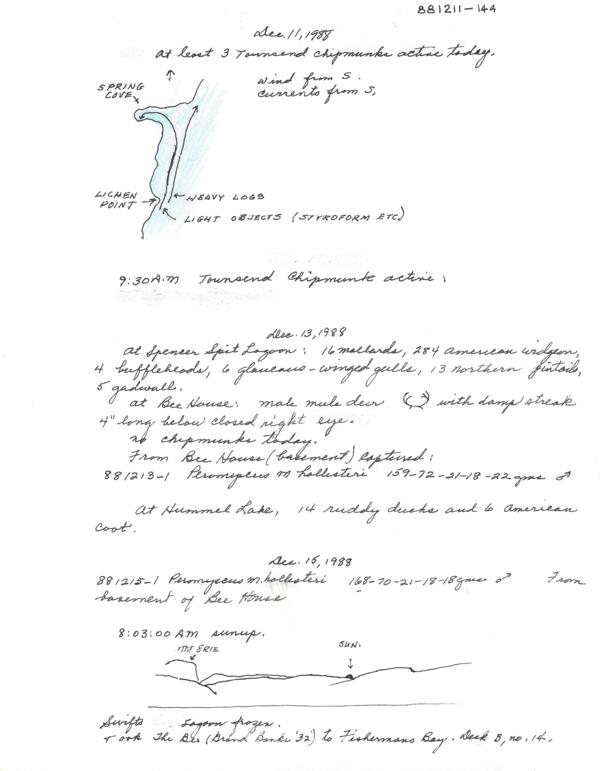 881211-144
Dec. 11, 1988
At least 3 Townsend chipmunks active today.
wind from S.
Currents from S,
SPRING
COVE
LICHEN
POINT
HEAVY LOGS
LIGHT OBJECTS (STYROFORM ETC.)
9:30 A.M Townsend Chipmunk active.
Dec. 13, 1988
At Spencer Spit Lagoon: 16 mallards, 284 American widgeon,
4 buffleheads, 6 glaucous-winged gulls, 13 northern pintails,
5 gadwall.
At Bee House: male mule deer with damp streak
4" long below closed right eye.
no chipmunks today.
From Bee House (basement) captured:
881213-1 Peromyscus m hollesteri 159-72-21-18-22 gms ♂
At Hummel Lake, 14 ruddy ducks and 6 American
Coot.
Dec. 15, 1988
881215-1 Peromyscus m. hollesteri 168-70-21-18-18gms ♂ From
basement of Bee House
8:03:00 AM sunup.
MT ERIE
SUN.
Swifts Lagoon frozen.
Took The Bee (Grand Banks '32) to Fishermans Bay. Dock B, no. 14.